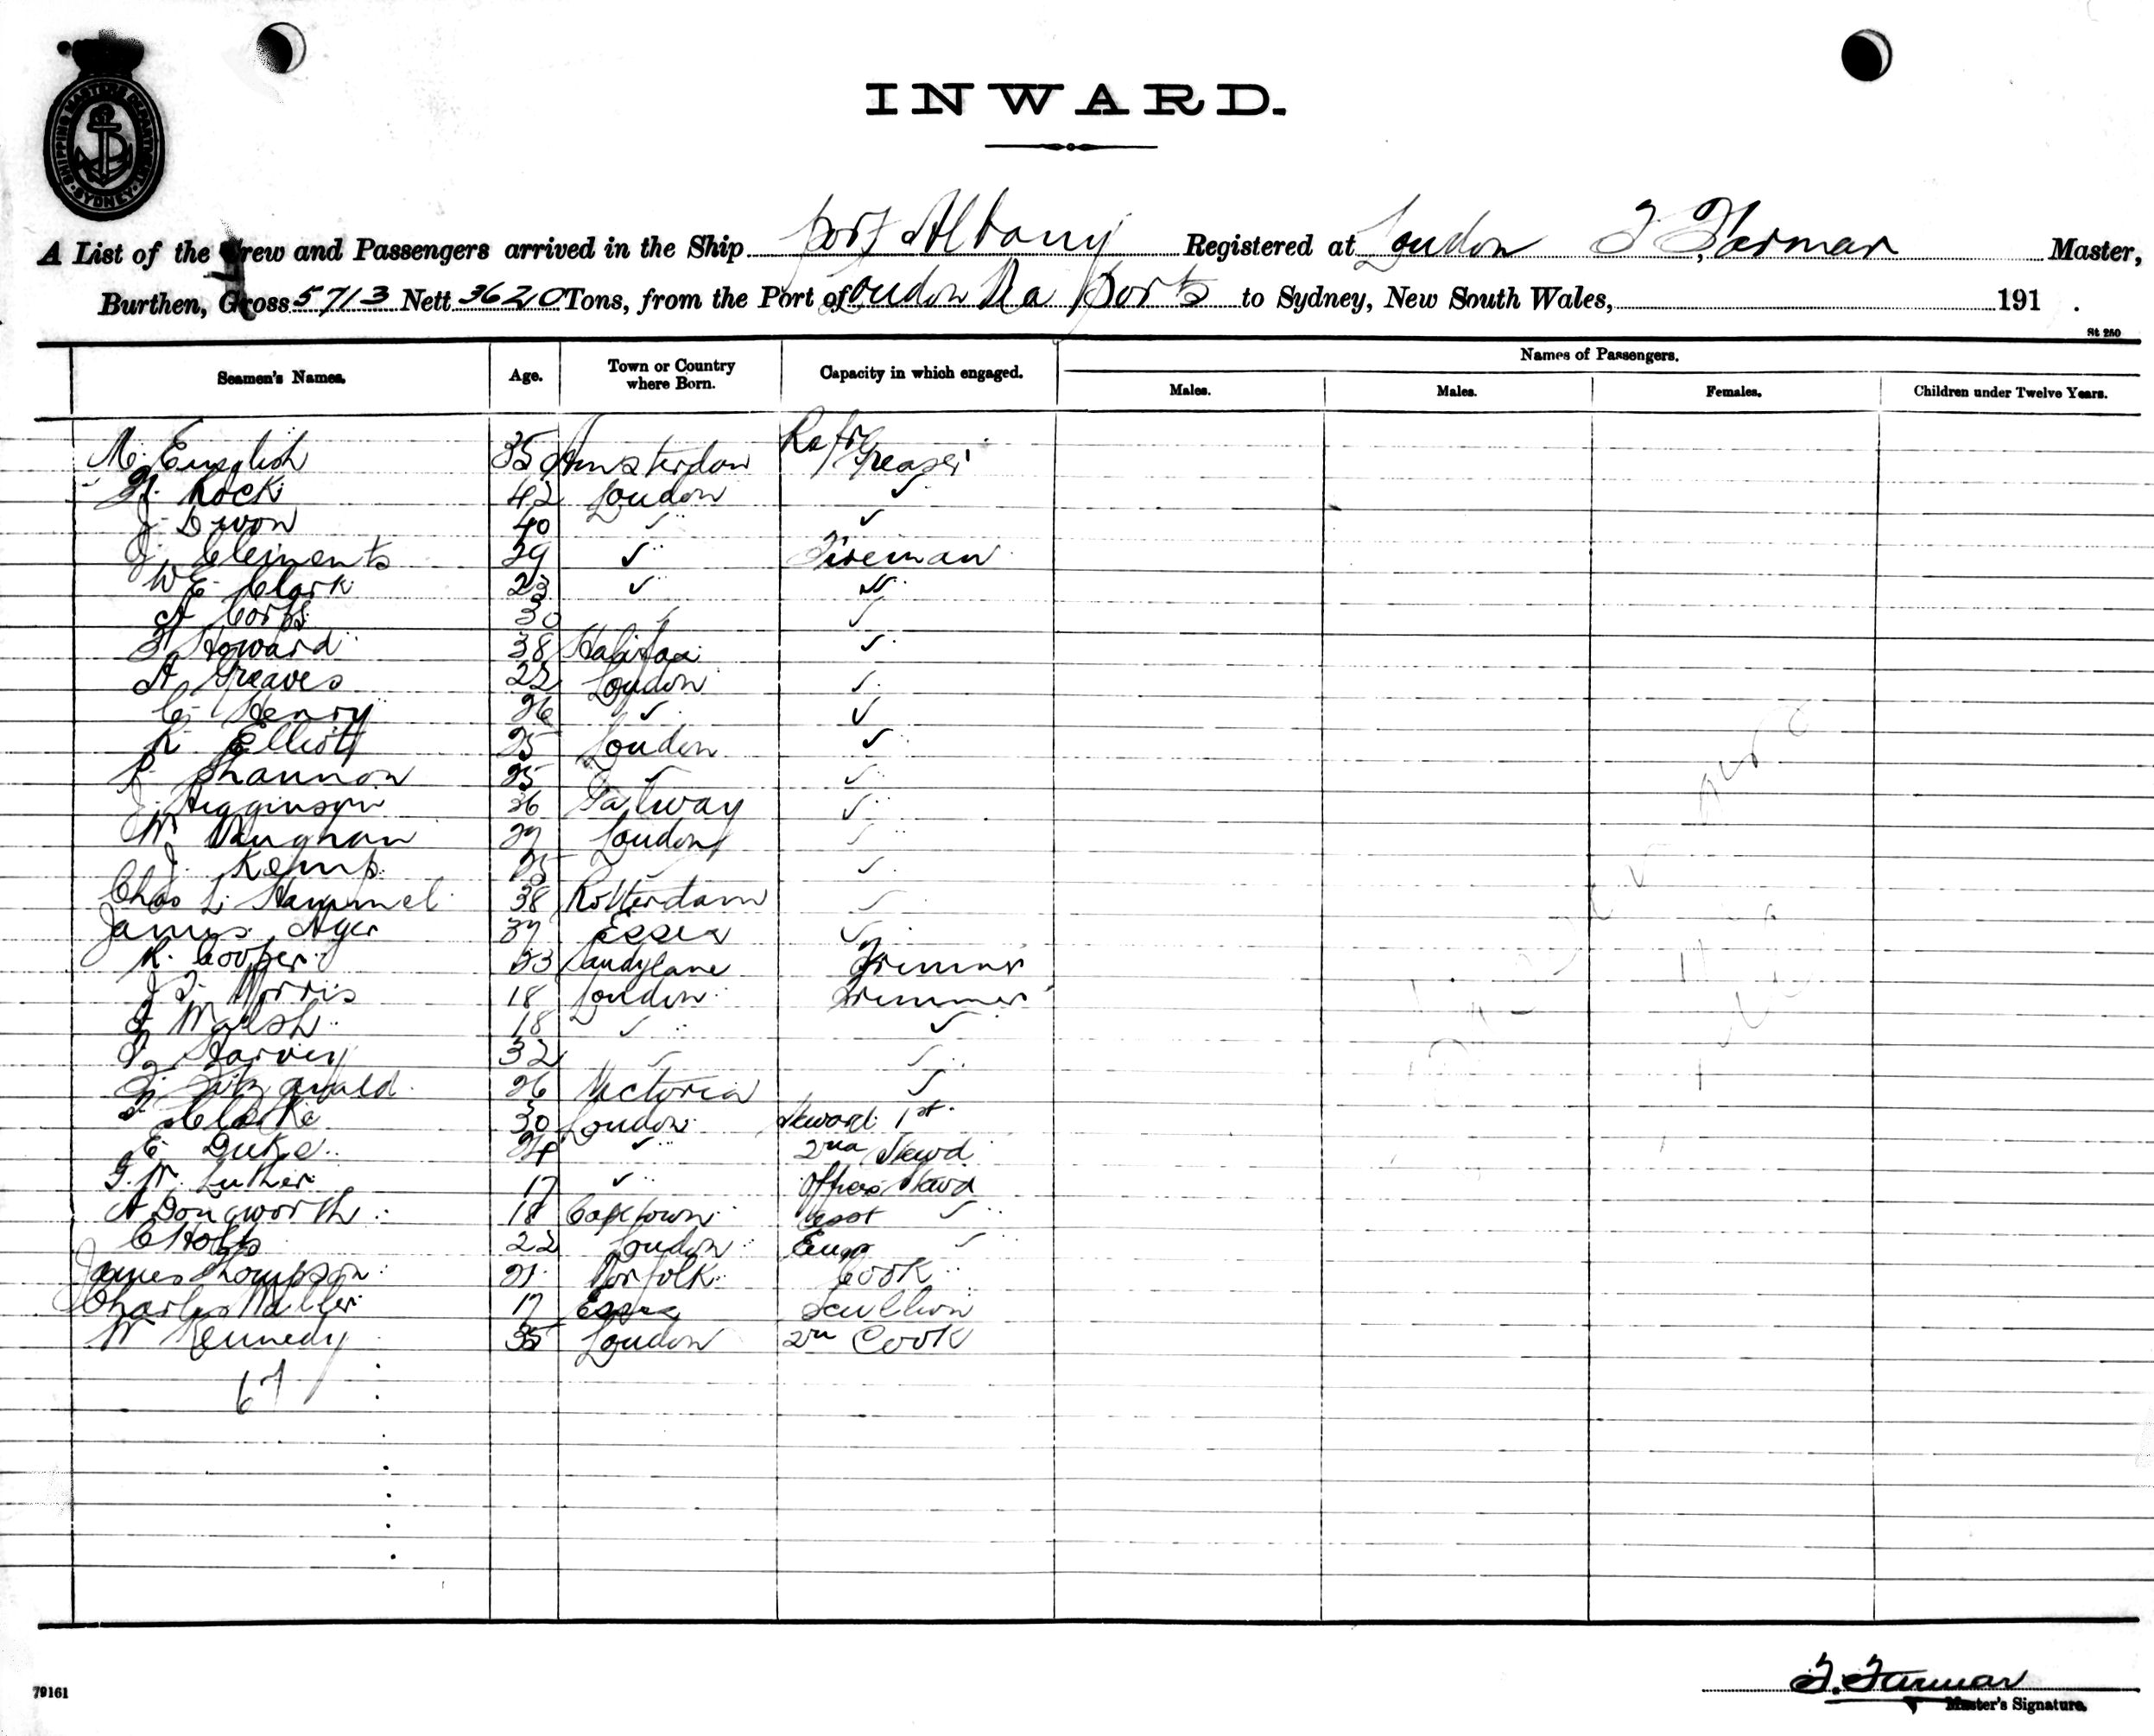 SHIPPING MASTERS DEPARTMENT SYDNEY
INWARD.
A List of the Crew and Passengers arrived in the Ship Port Albany Registered at London F Farmar Master,
Burthen, Gross 5713 Nett 3620 Tons, from the Port of London Via Ports to Sydney, New South Wales, 191 .
St 250
Seamen's Names. Age. Town or Country where Born. Capacity in which engaged. Names of Passengers.
Males. Males. Females. Children under Twelve Years.
M. English 35 Amsterdam Refrg Greaser
Rock 42 London ✓
J. Dixon 40 ✓ ✓
J. Clements 29 ✓ Fireman
W E Clark 23 ✓ ✓
A 30 ✓ ✓
Howard 38 Halifax ✓
A Greaves 22 London ✓
C. Henry 26 ✓ ✓
R. Elliott 25 London ✓
Shannon 25 ✓ ✓
J. Higginson 36 Galway ✓
W Vaughan 29 London ✓
J. Kemp 25 ✓ ✓
Chas L. Hammel 38 Rotterdam ✓
James Ager 37 Essex ✓
R. Cooper 23 Sandylane Trimmer
J. Norris 18 London Trimmer
Marsh 18 ✓ ✓
Harvey 32 ✓ ✓
Fitzgerald 26 Victoria ✓
Clarke 30 London Steward 1st
E. Duke 24 ✓ 2nd Stewd
G. W. Luther 17 ✓ Officers Stewd
A Dongworth 18 Capetown Asst ✓
C Holts 22 London Engr ✓
James Thompson 21 Norfolk Cook
Charles Waller 17 Essex Scullion
W Kennedy 35 London 2nd Cook
67
F. Farmar
79161
Master's Signature.